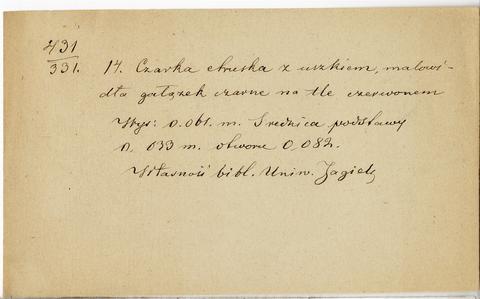 431
331.
14. Czarka etruska z uszkiem, malowi-
dła gałązek czarne na tle czerwonem
Wys: 0.061. m. Średnica podstawy
0. 033 m. otworu 0,082.
Własność bibl. Uniw. Jagiell.